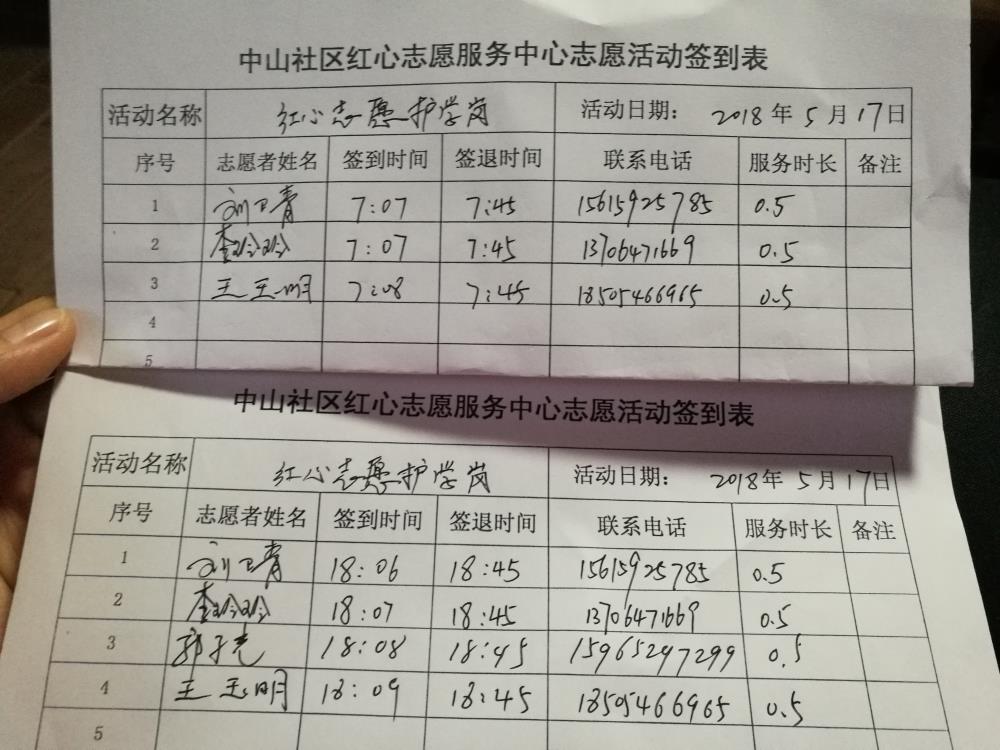 中山社区红心志愿服务中心志愿活动签到表
活动名称 红心志愿护学岗 活动日期： 2018年5月17日
序号 志愿者姓名 签到时间 签退时间 联系电话 服务时长 备注
1 刘卫青 7:07 7:45 15615925785 0.5
2 李玲玲 7:07 7:45 13706471669 0.5
3 王玉明 7:08 7:45 18505466965 0.5
4
5
中山社区红心志愿服务中心志愿活动签到表
活动名称 红心志愿护学岗 活动日期： 2018年5月17日
序号 志愿者姓名 签到时间 签退时间 联系电话 服务时长 备注
1 刘卫青 18:06 18:45 15615925785 0.5
2 李玲玲 18:07 18:45 13706471669 0.5
3 18:08 18:45 15965297299 0.5
4 王玉明 18:09 18:45 18505466965 0.5
5